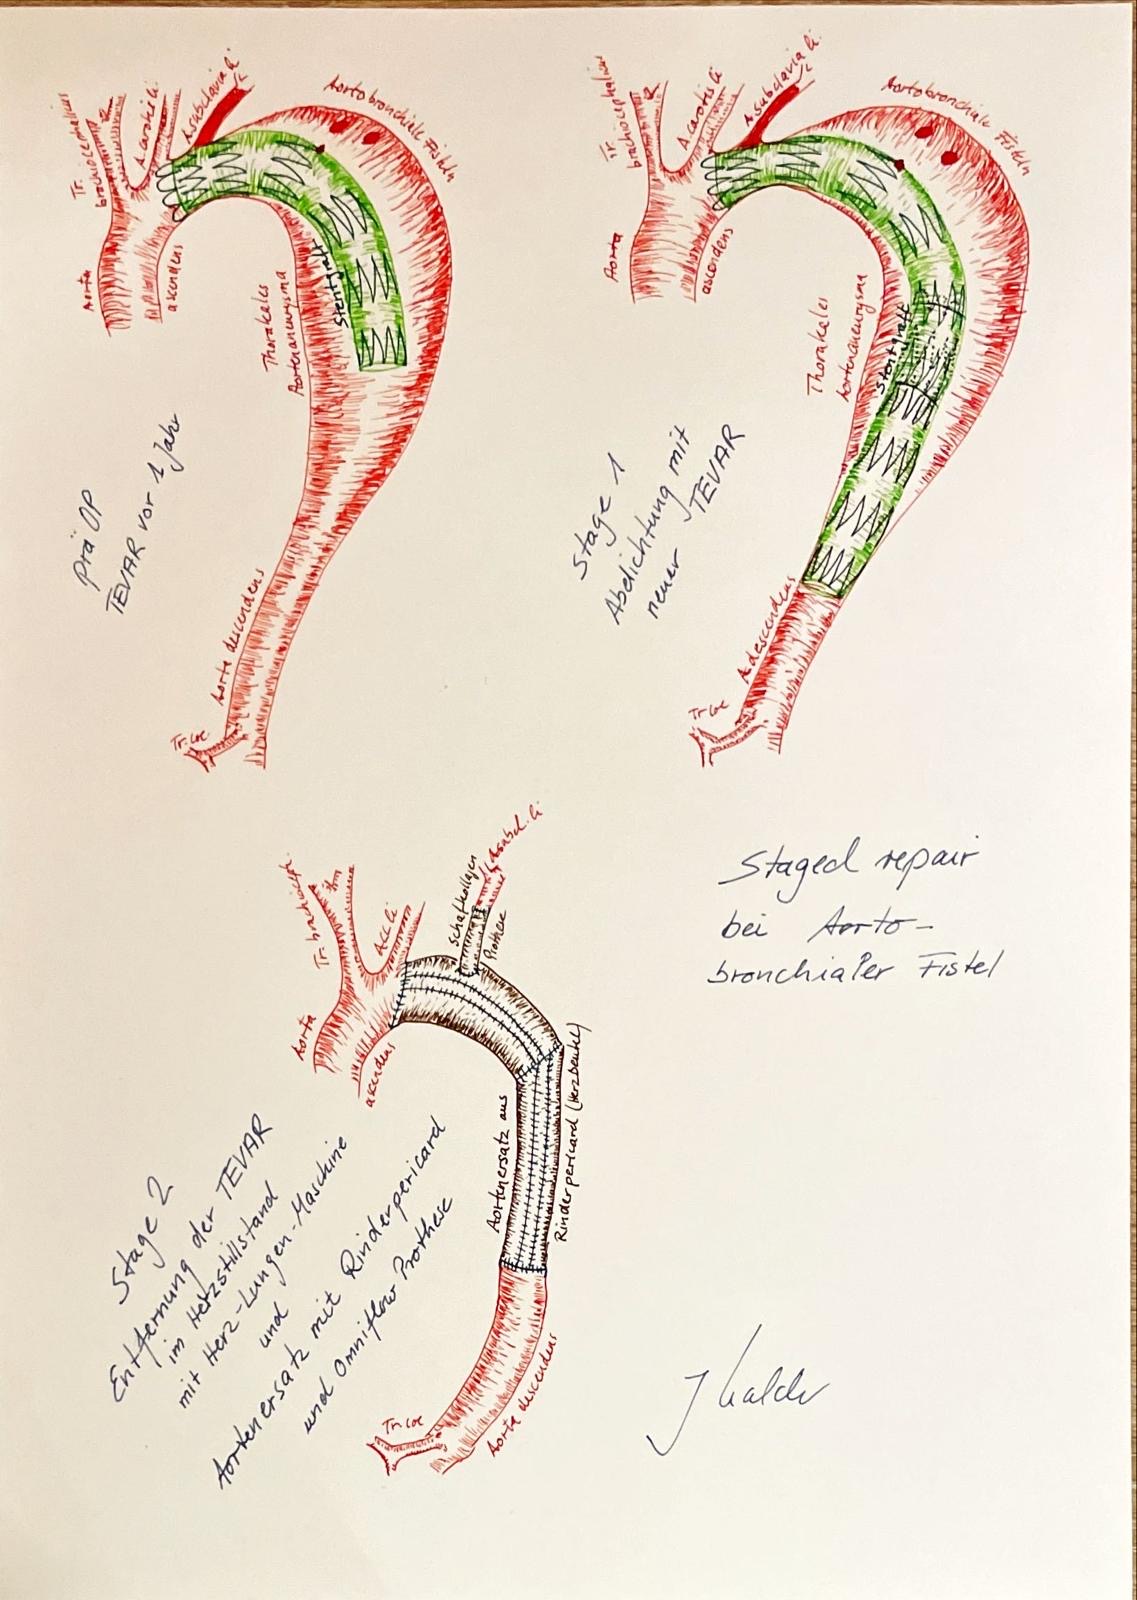 Tr.
brachiocephalicus
A. carotis li
A. subclavia li
Aortobronchiale Fisteln
Aorta
ascendens
Thorakales
Aortenaneurysma
Stentgraft
prä OP
TEVAR vor 1 Jahr
Aorta descendens
Tr. coe
Tr.
brachiocephalicus
A. carotis li
A. subclavia li
Aortobronchiale Fisteln
Aorta
ascendens
Thorakales
Aortenaneurysma
Stentgraft
Stage 1
Abdichtung mit
neuer TEVAR
A. descendens
Tr. coe
Tr. brachioceph.
ACC li
Schafkollagen
Prothese
A. subcl. li
Aorta
ascendens
Aortenersatz aus
Rinderpericard (Herzbeutel)
Aorta descendens
Tr. coe
Stage 2
Entfernung der TEVAR
im Herzstillstand
mit Herz-Lungen-Maschine
und
Aortenersatz mit Rinderpericard
und Omniflow Prothese
Staged repair
bei Aorto-
bronchialer Fistel